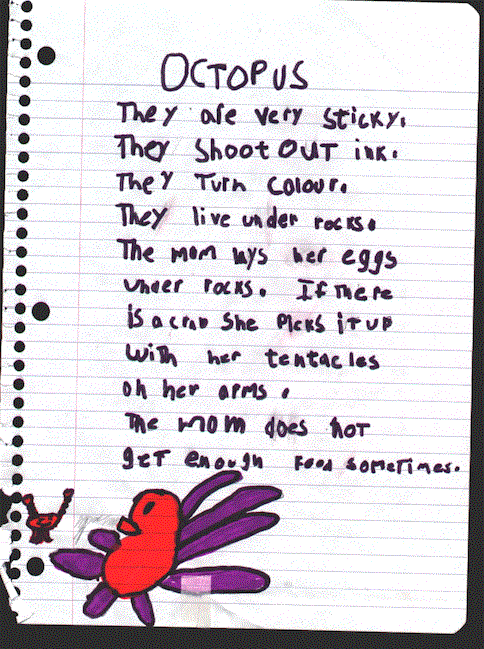 OCTOPUS
They are very sticky.
They shoot OUT ink.
They Turn colour.
They live under rocks.
The mom lays her eggs
under rocks. If there
is a crab she picks it up
with her tentacles
on her arms.
The mom does not
get enough food sometimes.